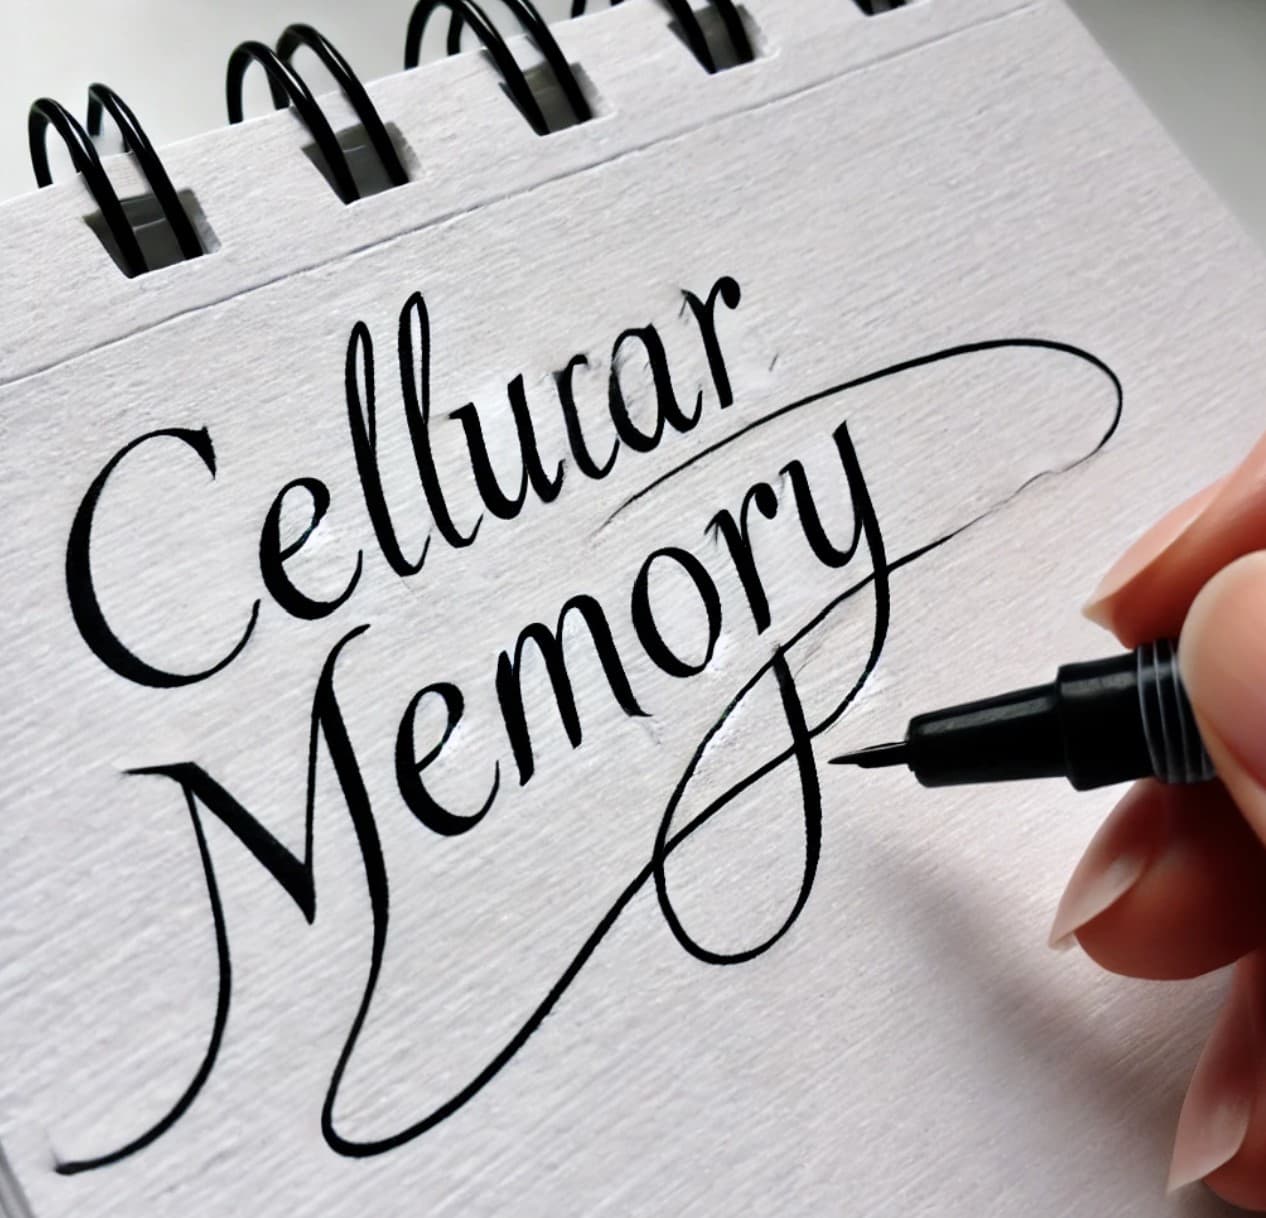 Cellucar
Memory